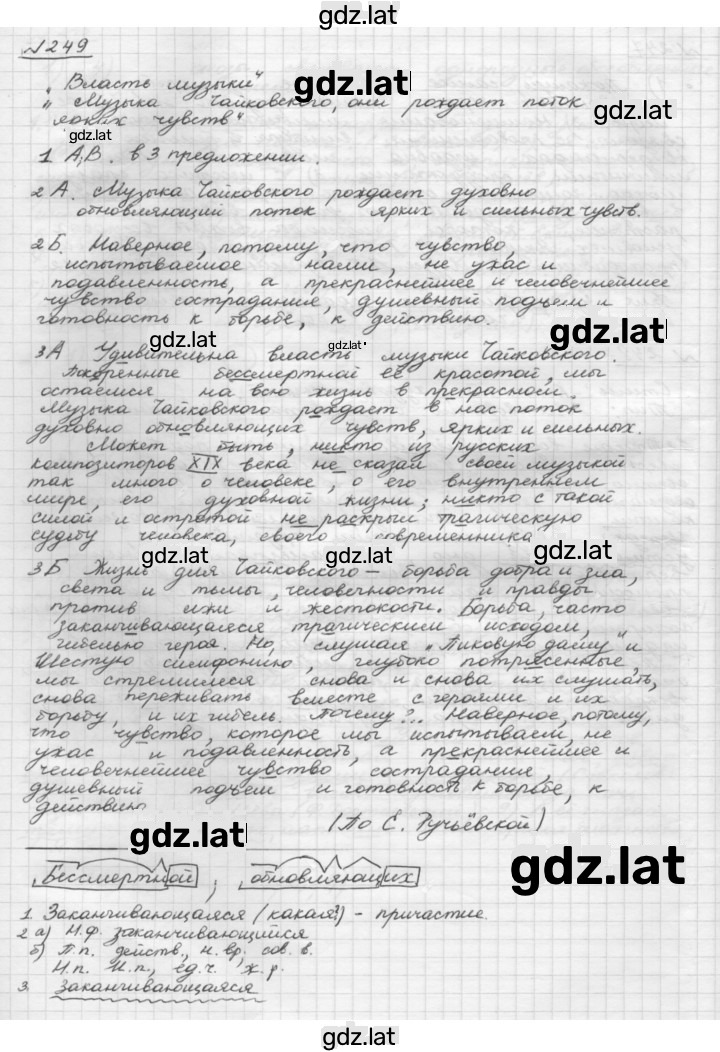 gdz.lat
№249
„Власть музыки"
gdz.lat
„Музыка Чайковского, они рождает поток
gdz.lat
ярких чувств"
gdz.lat
1 А,В. в 3 предложении.
2 А. Музыка Чайковского рождает духовно
обновляющий поток ярких и сильных чувств.
2Б. Наверное, потому, что чувство,
испытываемое нами, не ужас и
подавленность, а прекраснейшее и человечнейшее
чувство сострадания, душевный подъем и
готовность к борьбе, к действию.
gdz.lat
gdz.lat
gdz.lat
3А Удивительна власть музыки Чайковского.
Покоренные бессмертной её красотой, мы
остаемся на всю жизнь в прекрасной.
Музыка Чайковского рождает в нас поток
духовно обновляющих чувств, ярких и сильных.
Может быть, никто из русских
композиторов XIX века не сказал своей музыкой
так много о человеке, о его внутреннем
мире, его духовной жизни; никто с такой
силой и остротой не раскрыл трагическую
судьбу человека, своего современника
gdz.lat
gdz.lat
gdz.lat
3Б Жизнь для Чайковского – борьба добра и зла,
света и тьмы, человечности и правды
против лжи и жестокости. Борьба, часто
заканчивающаяся трагическим исходом,
гибелью героя. Но, слушая „Пиковую даму" и
Шестую симфонию, глубоко потрясенные,
мы стремимся снова и снова их слушать,
снова переживать вместе с героями и их
борьбу, и их гибель. Почему?.. Наверное, потому,
что чувство, которое мы испытываем, не
ужас и подавленность, а прекраснейшее и
человечнейшее чувство сострадания,
душевный подъем и готовность к борьбе, к
действию
(По Е. Ручьёвской)
gdz.lat
gdz.lat
gdz.lat
Бессмертной, обновляющих
1. Заканчивающаяся (какая?) – причастие.
2 а) Н.ф. заканчивающийся
б) П.п. действ., н. вр., сов. в.
Н.п. И.п., ед.ч. ж.р.
3. Заканчивающаяся
gdz.lat